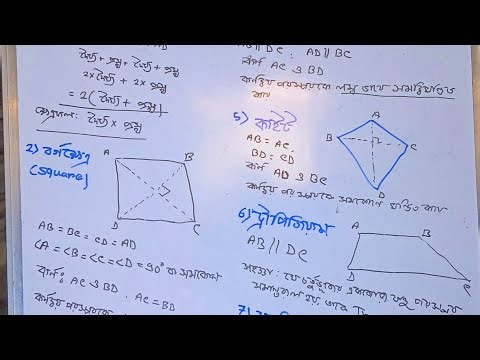 দৈর্ঘ্য + প্রস্থ + দৈর্ঘ্য + প্রস্থ
2x দৈর্ঘ্য + 2x প্রস্থ
= 2(দৈর্ঘ্য + প্রস্থ)
ক্ষেত্রফল: দৈর্ঘ্য x প্রস্থ
2) বর্গক্ষেত্র
(square)
A
B
D
C
AB = BC = CD = AD
<A = <B = <C = <D = 90° বা সমকোণ
কর্ণ: AC ও BD . AC = BD
কর্ণদ্বয় পরস্পরকে
AB || DC . AD || BC
কর্ণ AC ও BD
কর্ণদ্বয় পরস্পরকে লম্ব ভাবে সমদ্বিখণ্ডিত
করে
5) কাইট
AB = AC,
BD = CD
কর্ণ AD ও BC
কর্ণদ্বয় পরস্পরকে সমকোণে খণ্ডিত করে
A
B
C
D
6) ট্রাপিজিয়াম
AB || DC
A
B
D
C
সংজ্ঞা: যে চতুর্ভুজের একজোড়া বাহু পরস্পর
সমান্তরাল হয়, তাকে
7)